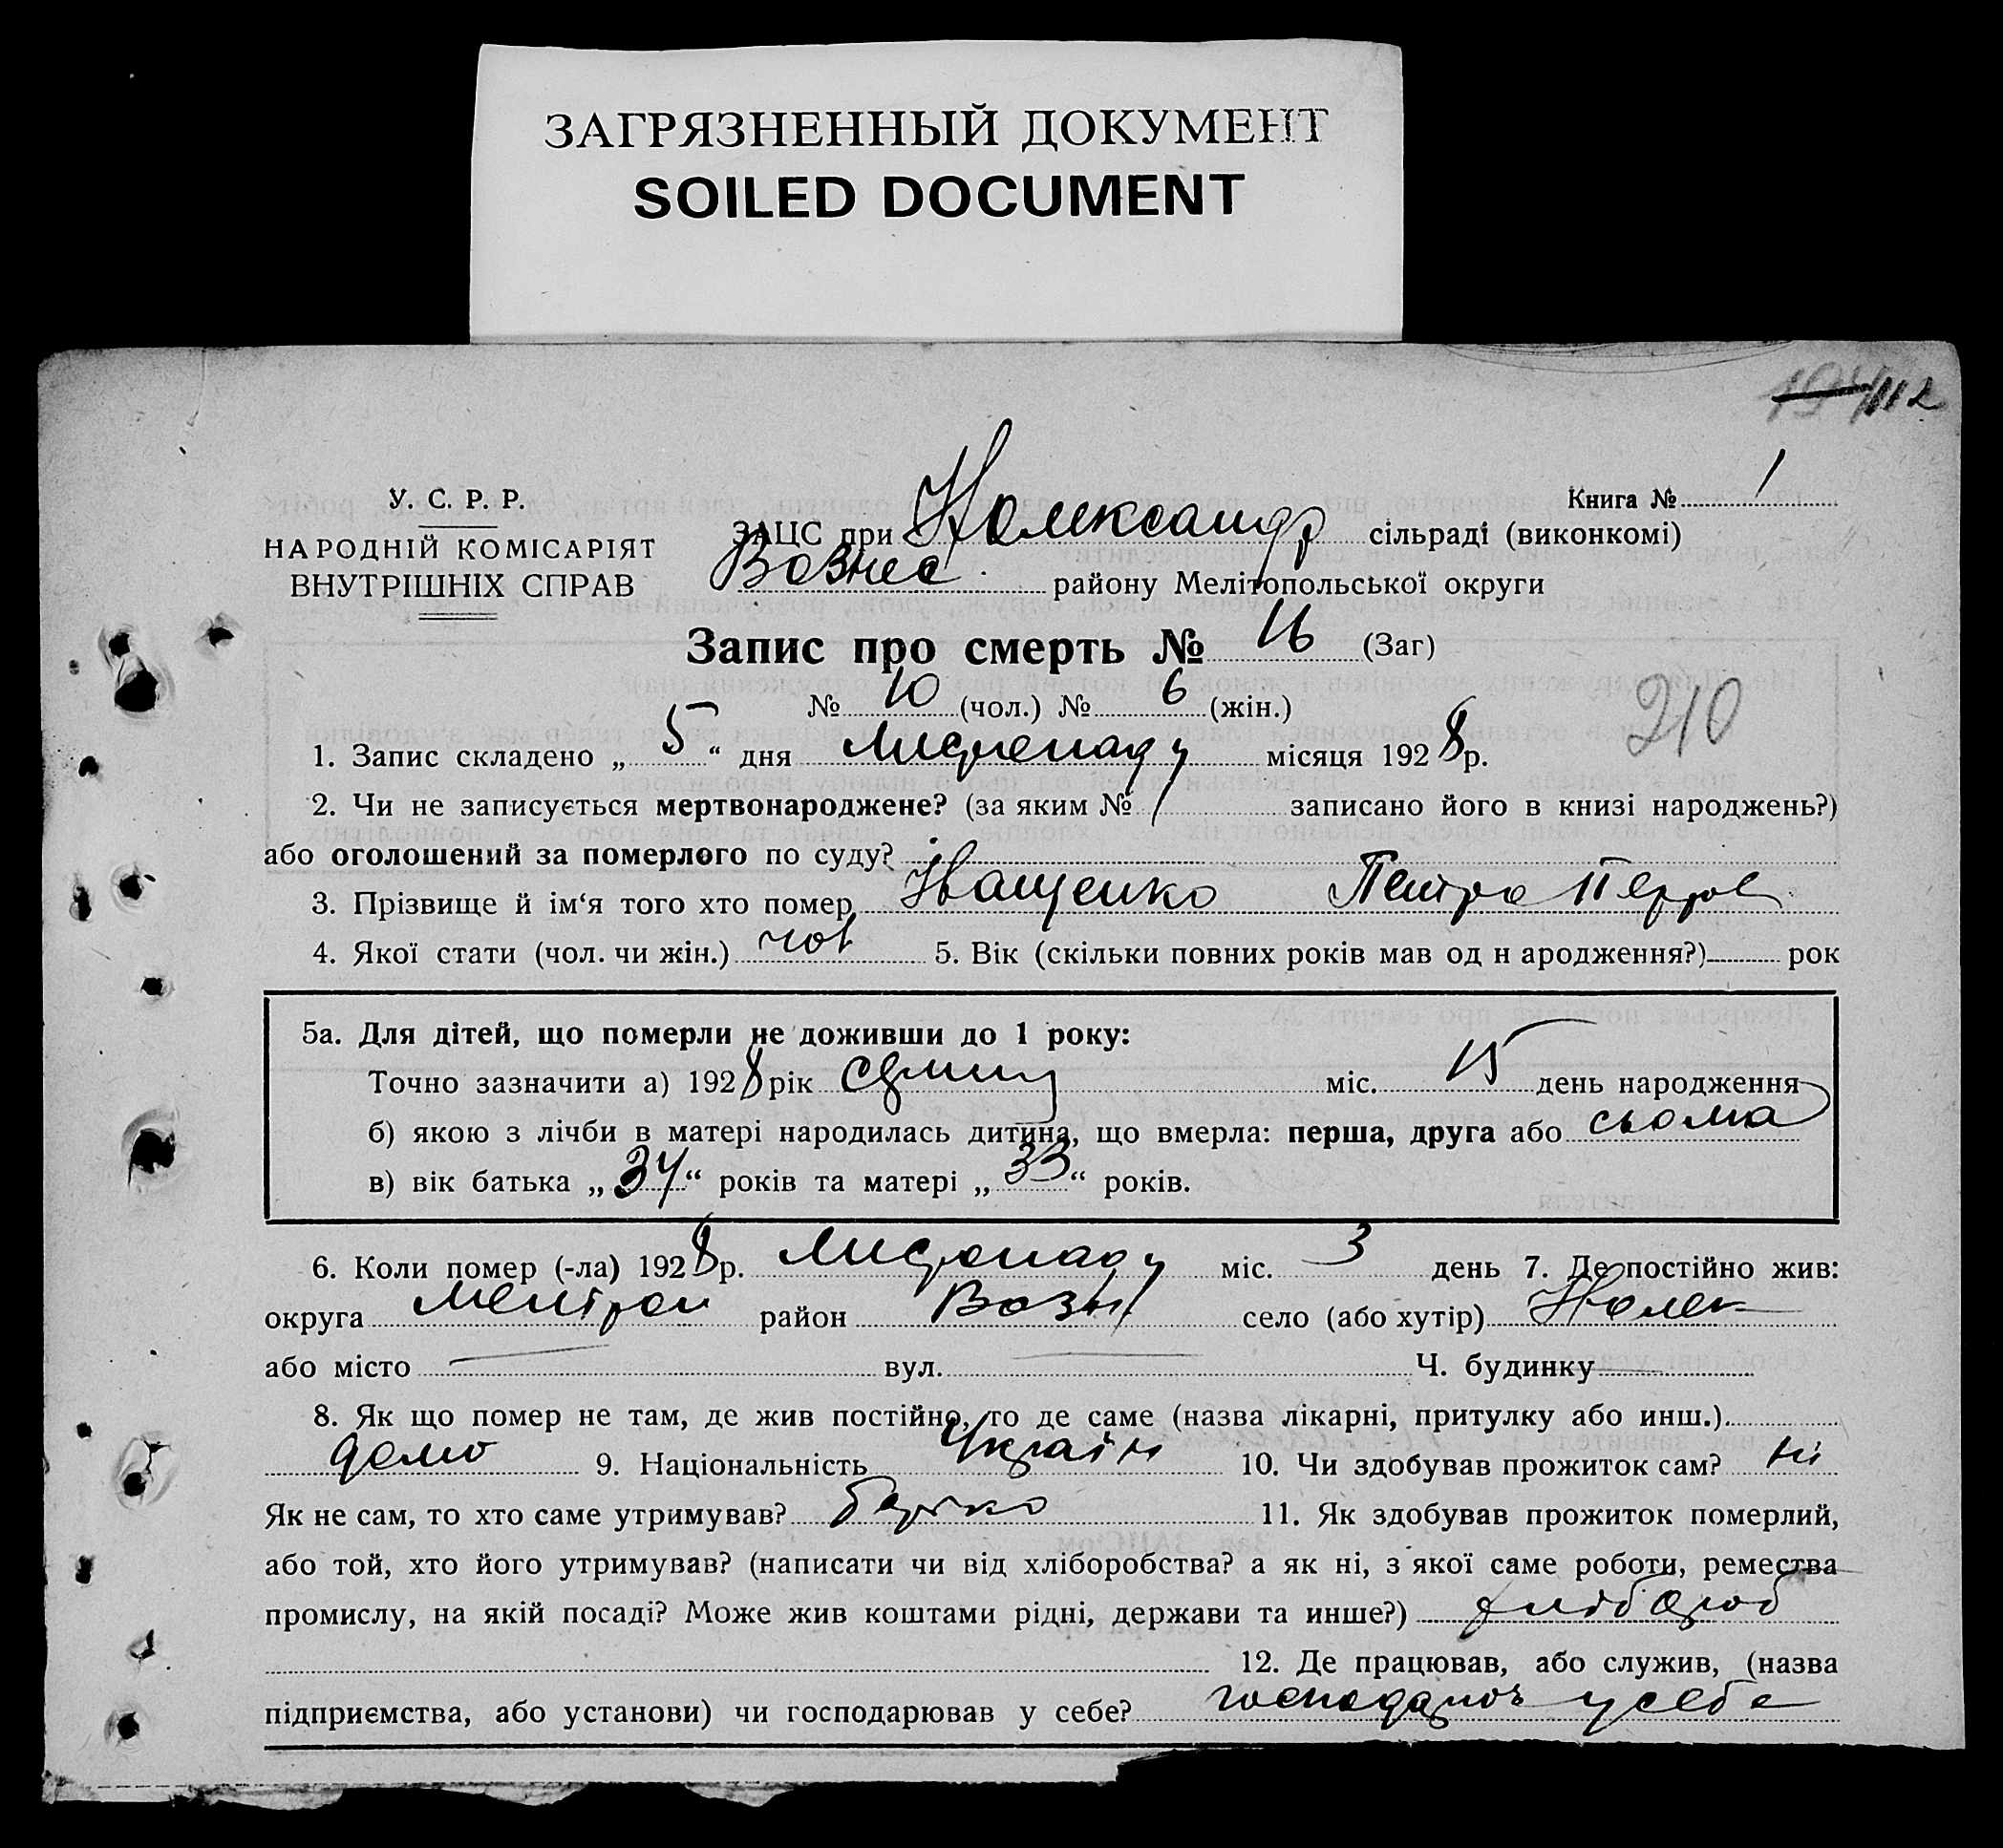 ЗАГРЯЗНЕННЫЙ ДОКУМЕНТ
SOILED DOCUMENT
112
У. С. Р. Р.
НАРОДНІЙ КОМІСАРІЯТ
ВНУТРІШНІХ СПРАВ
Книга № 1
ЗАЦС при Нолександр сільраді (виконкомі)
Вознес. району Мелітопольської округи
Запис про смерть № 16 (Заг)
№ 10 (чол.) № 6 (жін.)
210
1. Запис складено „ 5 “ дня листопаду місяця 1928 р.
2. Чи не записується мертвонароджене? (за яким № / записано його в книзі народжень?)
або оголошений за померлого по суду?
3. Прізвище й ім‘я того хто помер Іващенко Петро Петров
4. Якої стати (чол. чи жін.) чол 5. Вік (скільки повних років мав од н ародження?) рок
5а. Для дітей, що померли не доживши до 1 року:
Точно зазначити а) 1928 рік міс. 15 день народження
б) якою з лічби в матері народилась дитина, що вмерла: перша, друга або сьома
в) вік батька „ 34 “ років та матері „ 33 “ років.
6. Коли помер (-ла) 1928 р. Листопаду міс. 3 день 7. Де постійно жив:
округа Мелітроп район Возн село (або хутір) Нолек
або місто — вул. — Ч. будинку
8. Як що помер не там, де жив постійно, то де саме (назва лікарні, притулку або инш.)
дома 9. Національність Україн 10. Чи здобував прожиток сам? ні
Як не сам, то хто саме утримував? батько 11. Як здобував прожиток померлий,
або той, хто його утримував? (написати чи від хліборобства? а як ні, з якої саме роботи, ремества
промислу, на якій посаді? Може жив коштами рідні, держави та инше?) хлібороб
12. Де працював, або служив, (назва
підприємства, або установи) чи господарював у себе? у себе